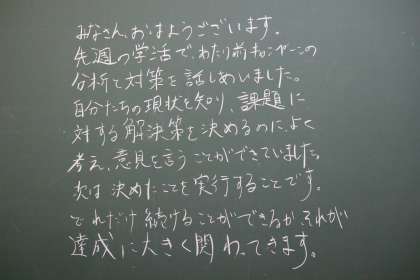 みなさん、おはようございます。
先週の学活で、あたり前キャンペーンの
分析と対策を話しあいました。
自分たちの現状を知り、課題に
対する解決策を決めるのに、よく
考え、意見を言うことができていました。
次は決めたことを実行することです。
どれだけ続けることができるか、それが
達成に大きく関わってきます。